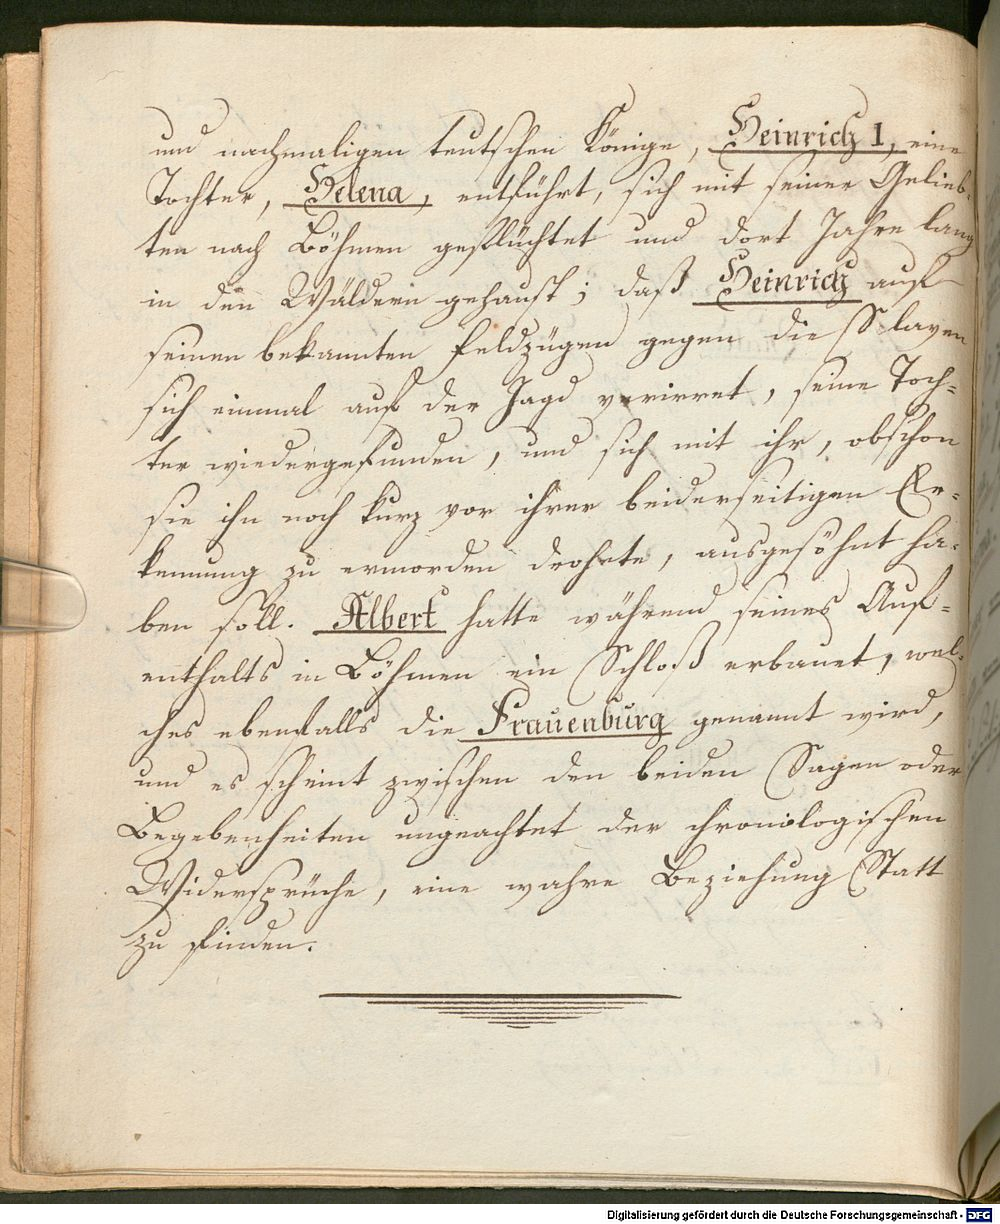 und nachmaligen teutschen Könige, Heinrich I, eine
Tochter, Helena, entführt, sich mit seiner Gelieb-
ten nach Böhmen geflüchtet und dort Jahre lang
in den Wäldern gehaust; daß Heinrich auf
seinen bekannten Feldzügen gegen die Slaven
sich einmal auf der Jagd verirret, seine Toch-
ter wiedergefunden, und sich mit ihr, obschon
sie ihn noch kurz vor ihrer beiderseitigen Er-
kennung zu ermorden drohete, ausgesöhnt ha-
ben soll. Albert hatte während seines Auf-
enthalts in Böhmen ein Schloß erbauet, wel-
ches ebenfalls die Frauenburg genannt wird,
und es scheint zwischen den beiden Sagen oder
Begebenheiten ungeachtet der chronologischen
Widersprüche, eine wahre Beziehung Statt
zu finden.
Digitalisierung gefördert durch die Deutsche Forschungsgemeinschaft - DFG